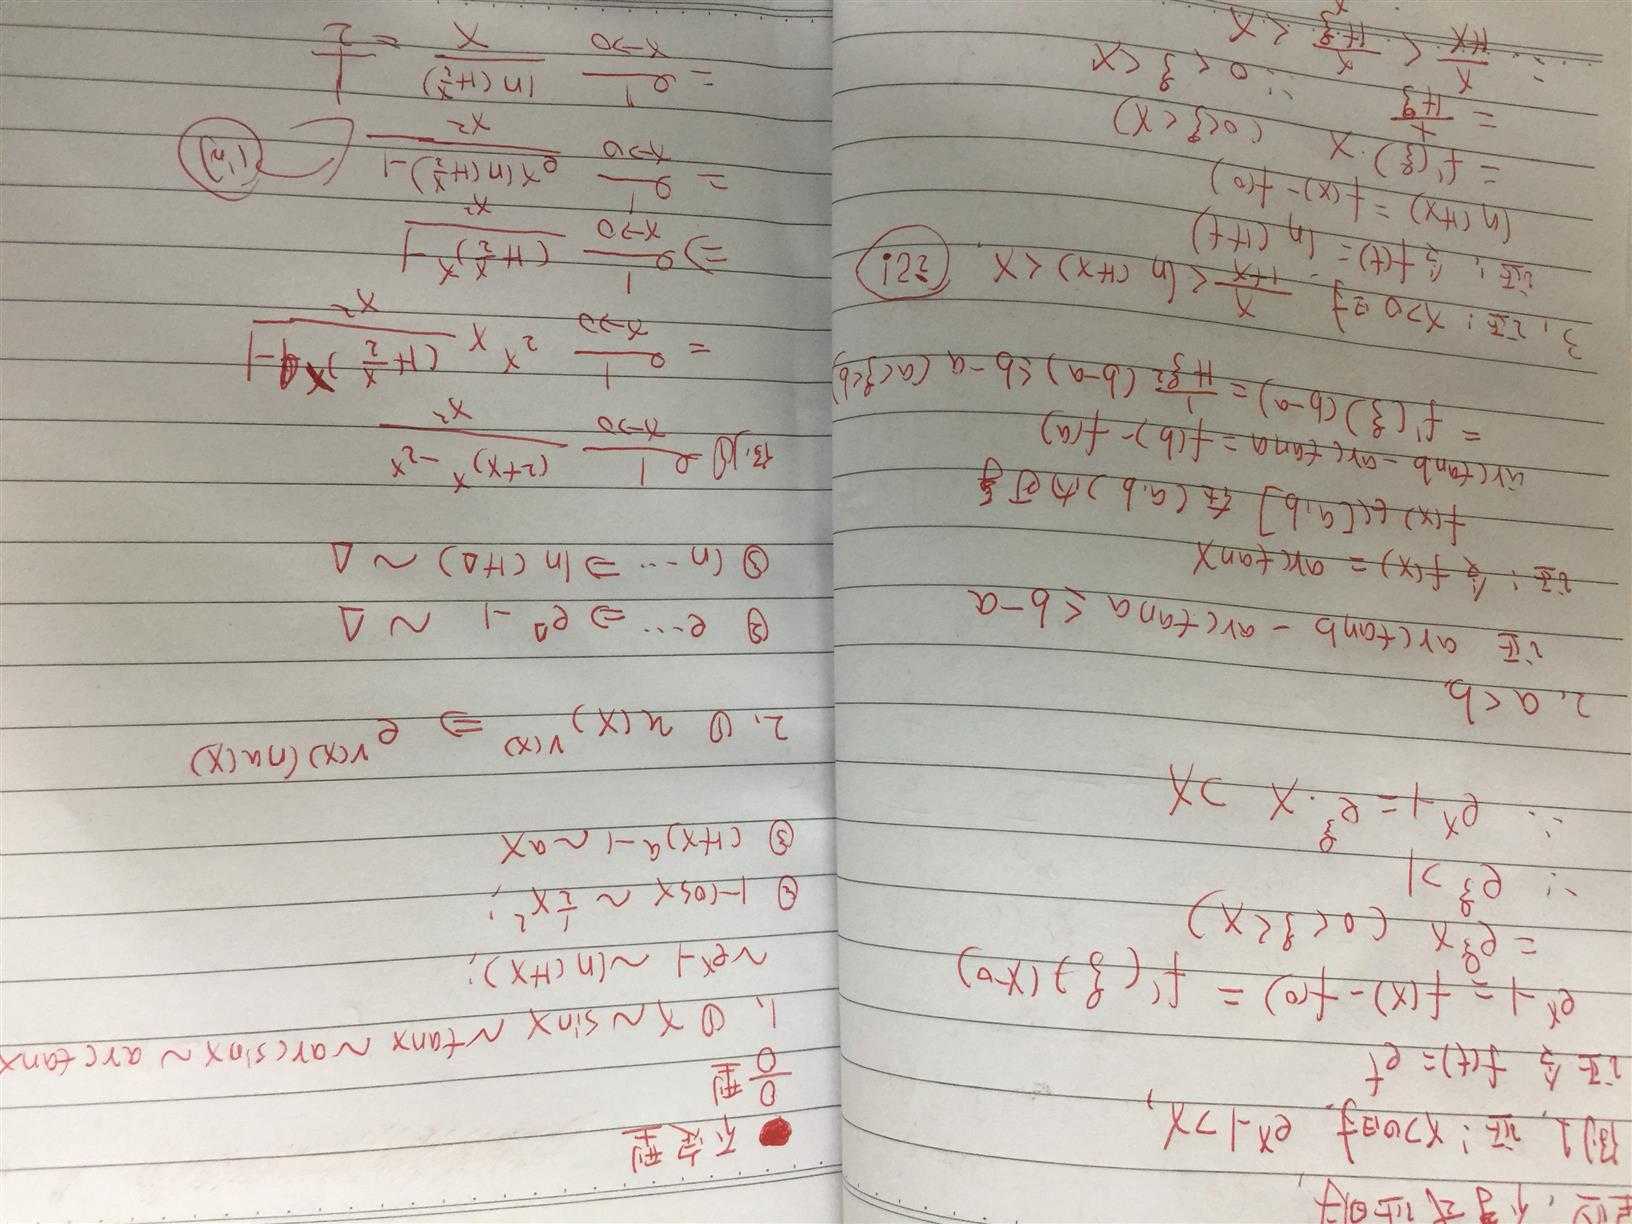 不等式证明
例1, 证: x>0时, eˣ-1>x,
证 令 f(t)=eᵗ
eˣ-1=f(x)-f(0) = f'(ξ)(x-0)
= e^ξ x (0<ξ<x)
∵ e^ξ >1
∴ eˣ-1= e^ξ · x >x
2, a<b
证 arctanb - arctana ≤ b-a
证: 令 f(x) = arctanx
f(x)∈C[a,b] 在(a,b)内可导
arctanb - arctana = f(b)-f(a)
= f'(ξ)(b-a) = 1/(1+ξ²) (b-a) ≤ b-a (a<ξ<b)
3, 证: x>0时 x/(1+x) < ln(1+x) <x 记
证: 令 f(t)= ln(1+t)
ln(1+x) = f(x)-f(0)
= f'(ξ)·x (0<ξ<x)
= x/(1+ξ) ∵ 0<ξ<x
∴ x/(1+x) < x/(1+ξ) < x
不定型
0/0型
1, ① x~sinx~tanx~arcsinx~arctanx
~eˣ-1~ln(1+x);
② 1-cosx ~ 1/2 x²;
③ (1+x)ᵃ-1~ax
2, ① u(x)^v(x) ⇒ e^v(x)lnu(x)
② e… ⇒ e^Δ -1 ~ Δ
③ ln… ⇒ ln(1+Δ) ~ Δ
例1 ① lim x→0 ((2+x)ˣ-2ˣ)/x²
= lim x→0 2ˣ × ((1+x/2)ˣ-1)/x²
⇒ lim x→0 ((1+x/2)ˣ-1)/x²
= lim x→0 (e^xln(1+x/2) -1)/x²
= lim x→0 ln(1+x/2)/x = 1/2